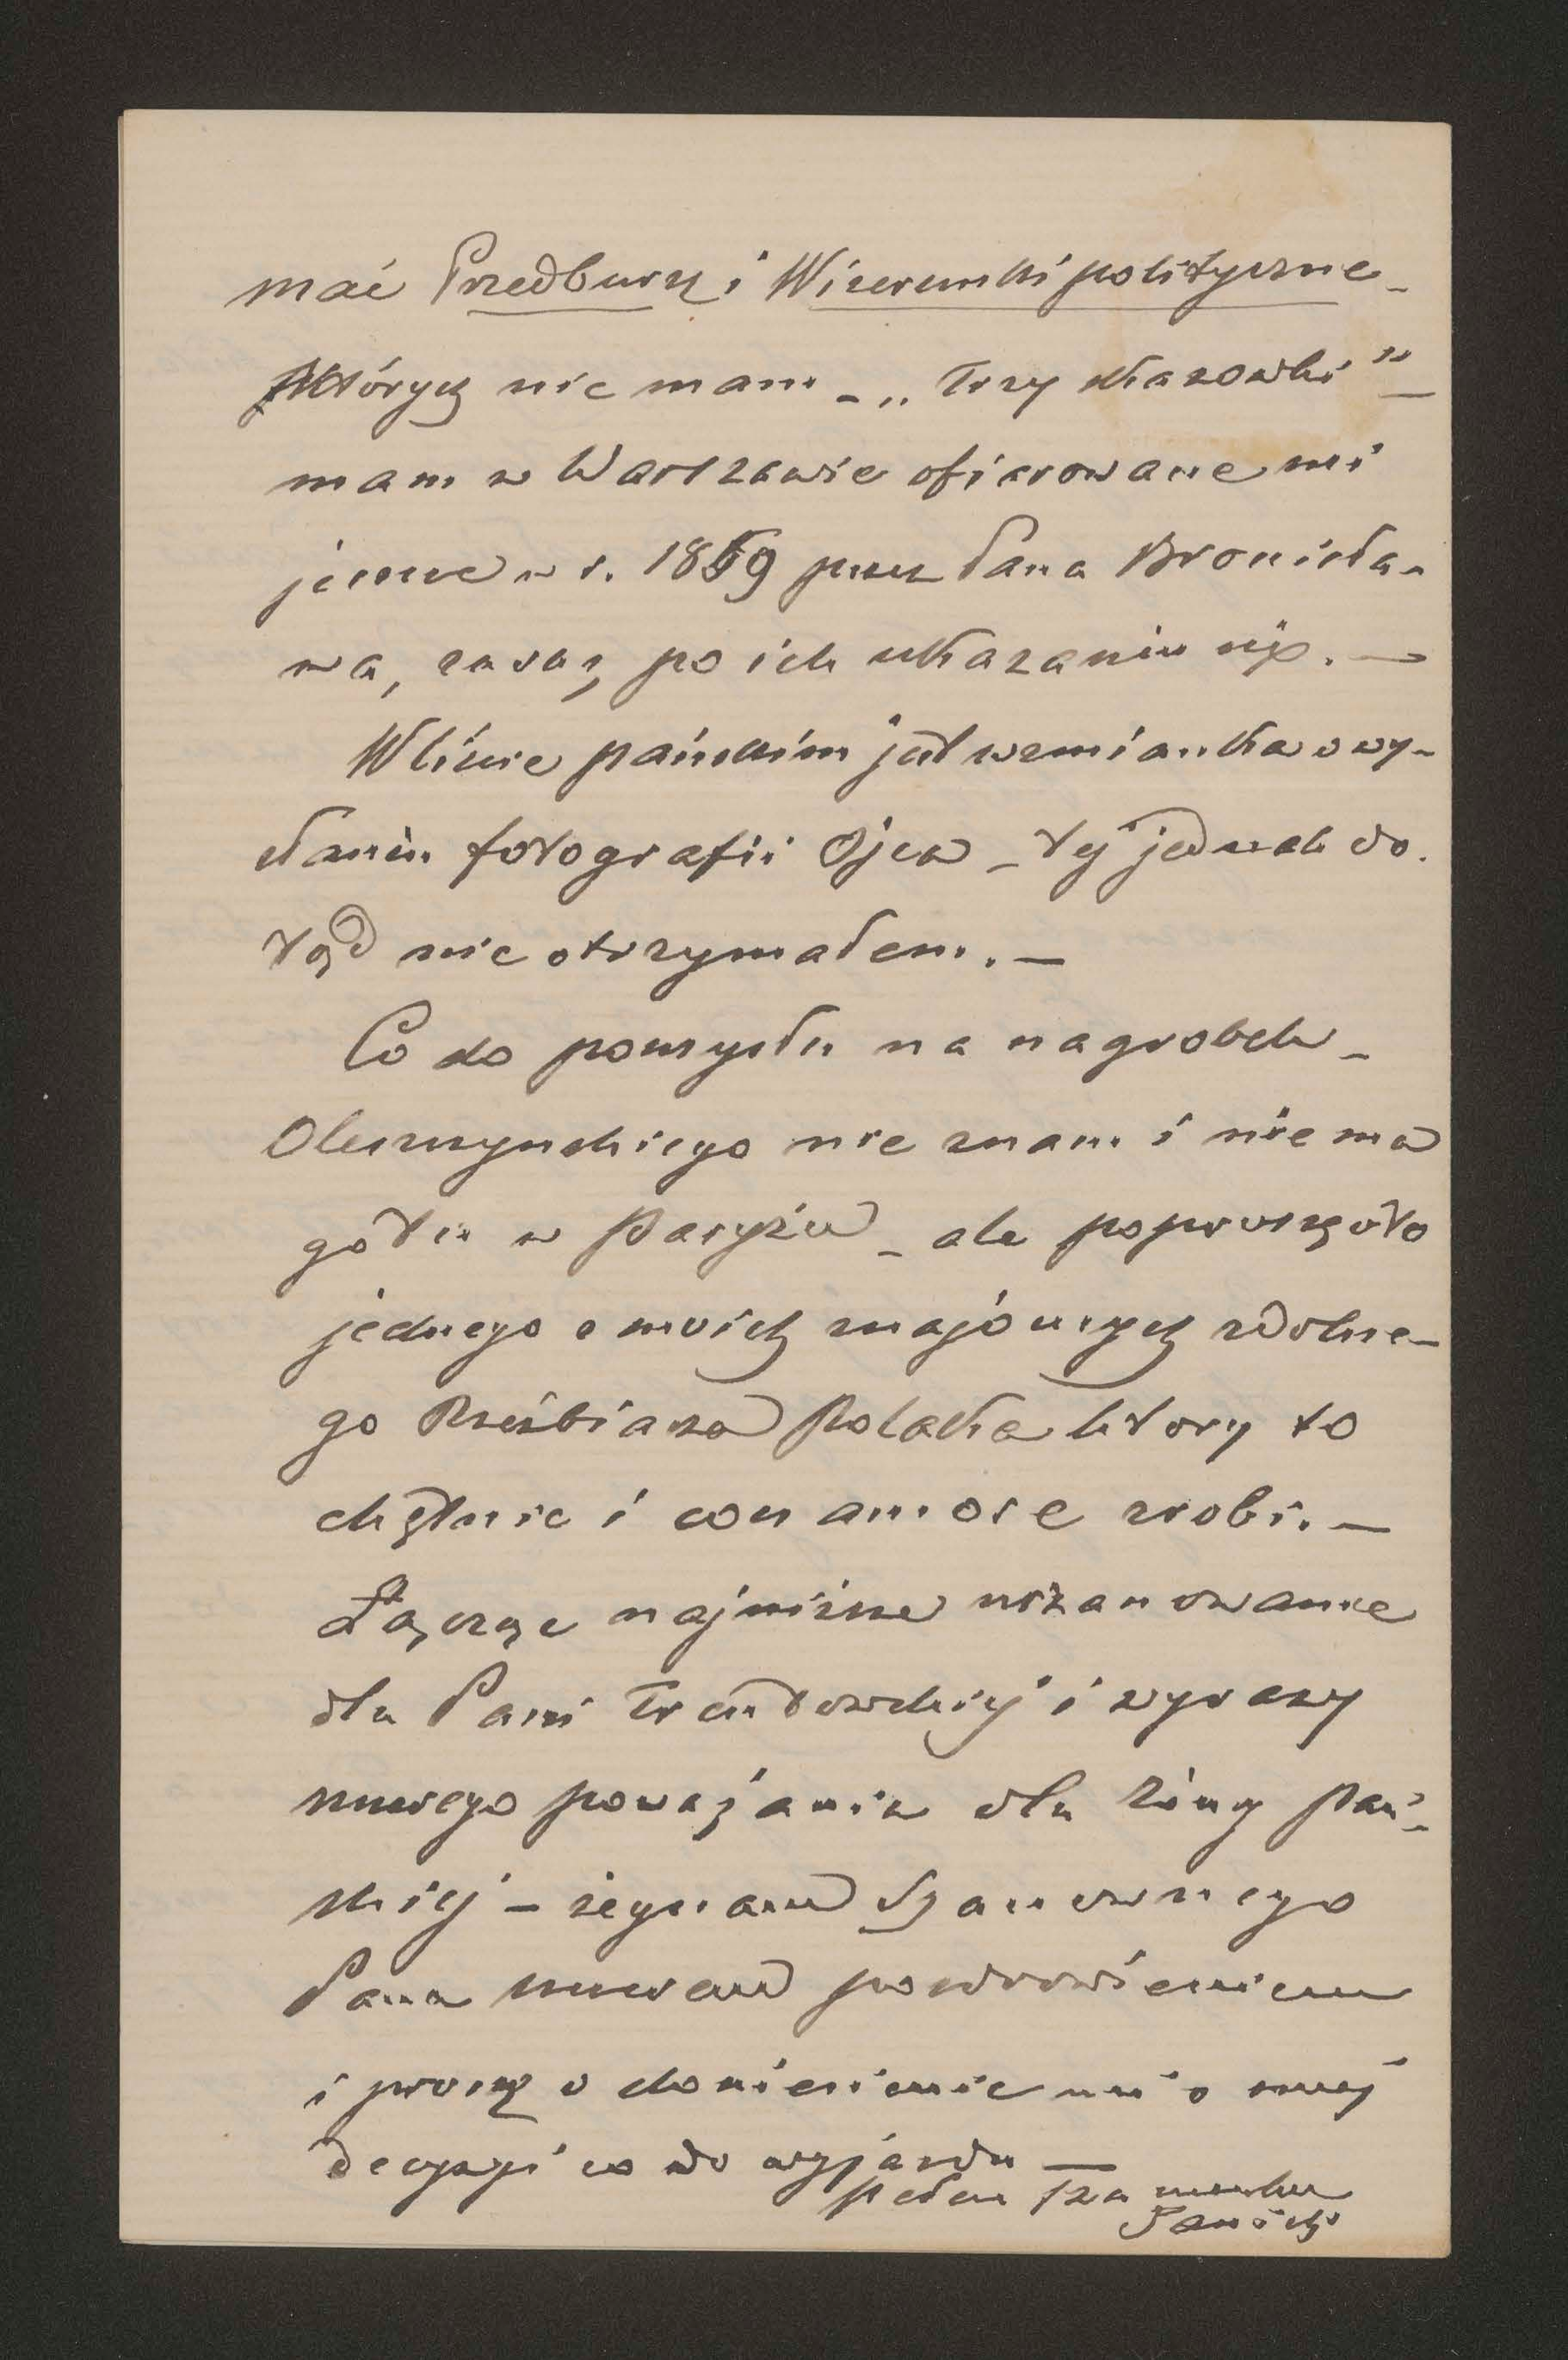 mać Przedburzę i Wizerunki polityczne -
których nie mam - „Trzy skazówki" -
mam w Warszawie ofiarowane mi
jeszcze w r. 1859 przez Pana Bronisła-
wa, zaraz po ich ukazaniu się. —
W liście pańskim jest wzmianka o wy-
słaniu fotografii Ojca - tej jednak do
tąd nie otrzymałem. —
Co do pomysłu na nagrobek -
Oleszczynskiego nie znam i nie ma
go tu w Paryżu - ale poproszę o to
jednego z moich znajomych zdolne-
go Rzeźbiarza Polaka który to
chętnie i con amore zrobi. —
Łącząc najniższe uszanowanie
dla Pani Trentowskiej i wyrazy
mego poważania dla żony Pań-
skiej - żegnam Szanownego
Pana pozdrowieniem
i proszę o doniesienie mi o swej
decyzyi co do wyjazdu —
pełen szacunku